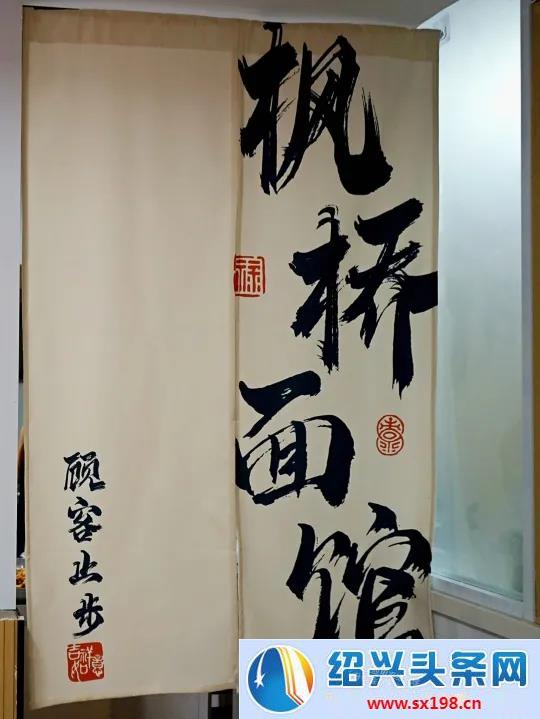 枫桥面馆
顾客止步
绍兴头条网
www.sx198.cn